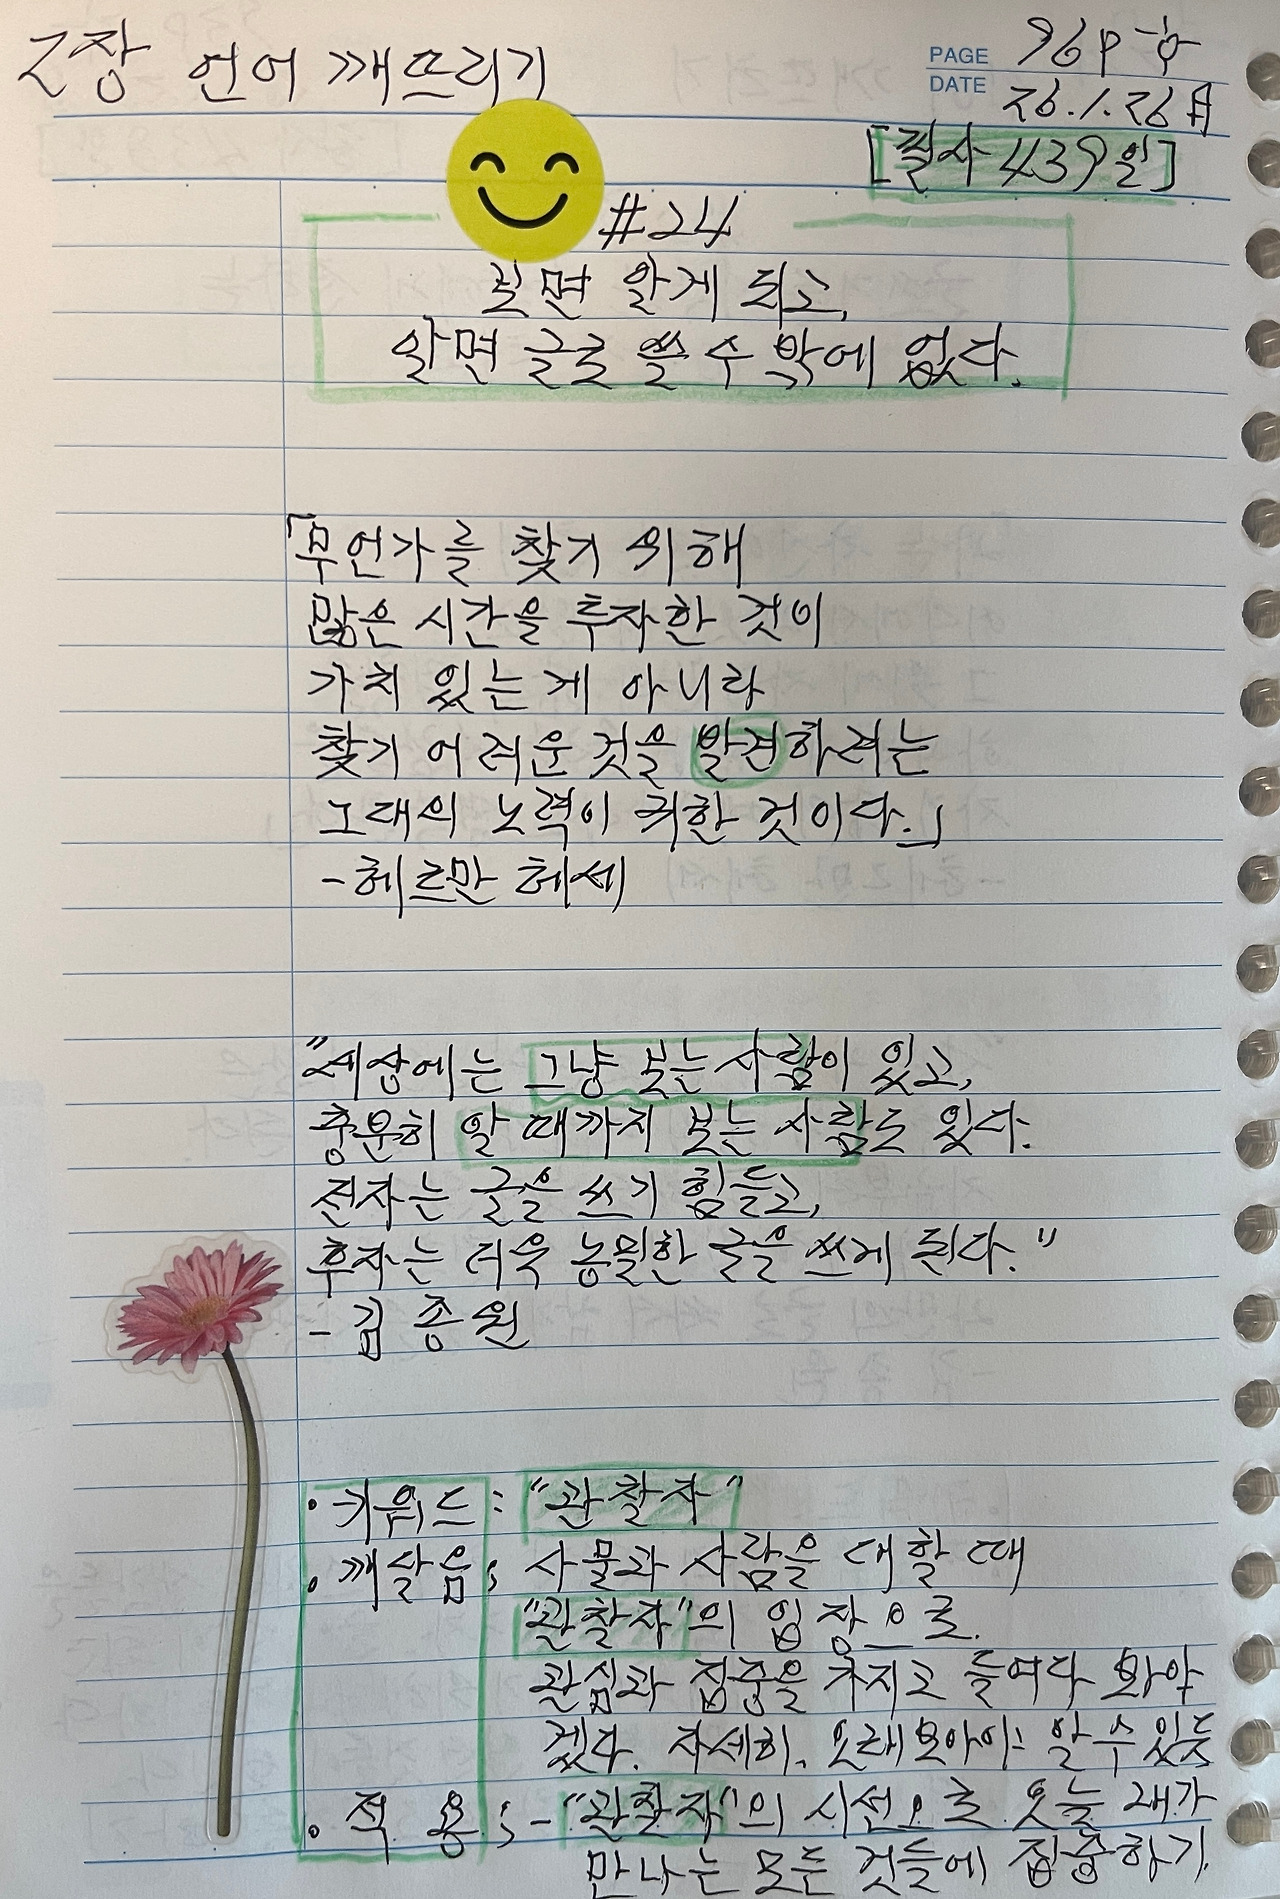 2장 언어 깨뜨리기
PAGE 96p 中
DATE 26.1.26 月
[필사 439일]
#24
보면 알게 되고,
알면 글로 쓸 수 밖에 없다.
「무언가를 찾기 위해
많은 시간을 투자한 것이
가치 있는 게 아니라
찾기 어려운 것을 발견하려는
그대의 노력이 귀한 것이다.」
-헤르만 헤세
"세상에는 그냥 보는 사람이 있고,
충분히 알 때까지 보는 사람도 있다.
전자는 글을 쓰기 힘들고,
후자는 더욱 농밀한 글을 쓰게 된다."
- 김종원
· 키워드 : "관찰자"
· 깨달음 ; 사물과 사람을 대할 때
"관찰자"의 입장으로.
관심과 집중을 가지고 들여다 봐야
겠다. 자세히. 오래 보아야 알 수 있듯
· 적 용 ; -"관찰자"의 시선으로 오늘 내가
만나는 모든 것들에 집중하기.